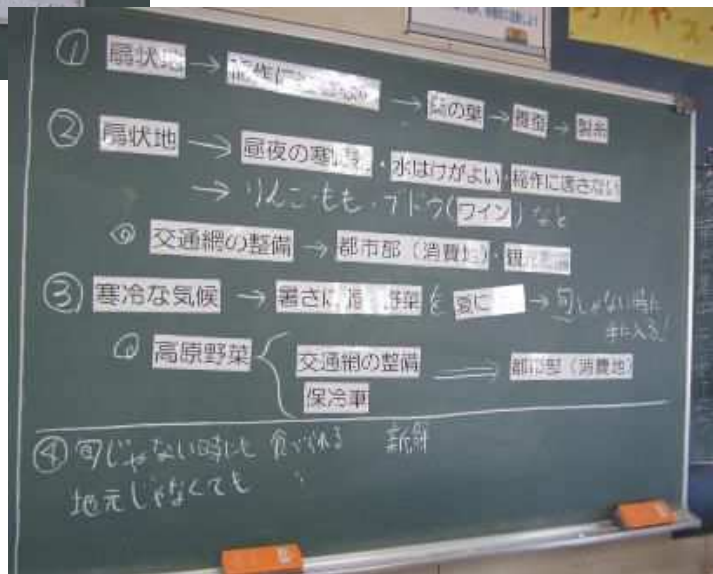 ① 扇状地 → 稲作に → 桑の葉 → 養蚕 → 製糸
② 扇状地 → 昼夜の寒暖差・水はけがよい・稲作に適さない
→ りんご・もも・ブドウ(ワイン)など
交通網の整備 → 都市部（消費地）・観光
③ 寒冷な気候 → 暑さに弱い野菜を 夏に → 旬じゃない時に
手に入る!
高原野菜 { 交通網の整備 → 都市部（消費地）
保冷車
④ 旬じゃない時にも 食べられる 新鮮
地元じゃなくても